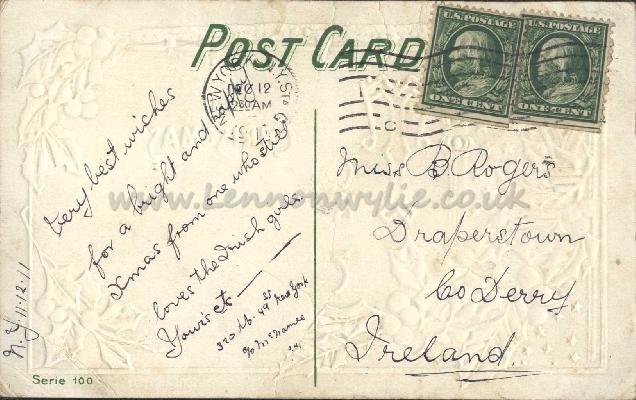 POST CARD
U.S. POSTAGE
ONE CENT
U.S. POSTAGE
ONE CENT
NEW YORK, N.Y. Sta
DEC 12
AM
Very best wishes
for a bright and
Xmas from one who
loves the Irish girls
Yours etc
320 W. 49 St New York
c/o McNamee
N.Y. 11.12.11
Miss B Rogers
Draperstown
Co Derry
Ireland.
www.Lennonwylie.co.uk
Serie 100